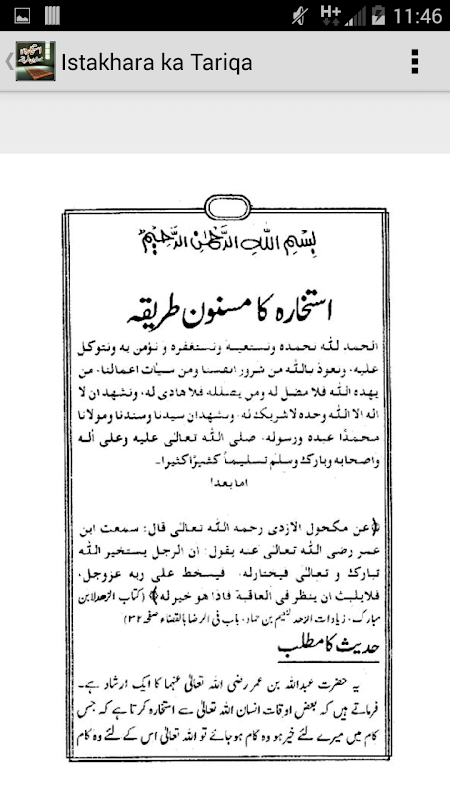 H+ 11:46
Istakhara ka Tariqa
بِسْمِ اللهِ الرَّحْمٰنِ الرَّحِيْمِ
استخارہ کا مسنون طریقہ
الحمد للہ نحمدہ ونستعینہ ونستغفرہ و نؤمن بہ ونتوکل
علیہ، ونعوذ باللہ من شرور انفسنا ومن سیأت اعمالنا، من
یھدہ اللہ فلا مضل لہ ومن یضللہ فلا ھادی لہ، ونشھد ان لا
الہ الا اللہ وحدہ لاشریک لہ، ونشھدان سیدنا وسندنا ومولانا
محمدًا عبدہ ورسولہ، صلی اللہ تعالٰی علیہ وعلی آلہ
واصحابہ وبارک وسلم تسلیماً کثیرًا کثیرا۔
اما بعد!
﴿عن مکحول الازدی رحمہ اللہ تعالٰی قال: سمعت ابن
عمر رضی اللہ تعالٰی عنہ یقول: ان الرجل یستخیر اللہ
تبارک و تعالٰی فیختارلہ، فیسخط علی ربہ عزوجل،
فلایلبث ان ینظر فی العاقبة فاذا ھو خیر لہ﴾ (کتاب الزھد لابن
مبارک، زیادات الزھد لنعیم بن حماد، باب فی الرضا بالقضاء صفحہ ۳۲)
حدیث کا مطلب
یہ حضرت عبداللہ بن عمر رضی اللہ تعالٰی عنہما کا ایک ارشاد ہے۔
فرماتے ہیں کہ بعض اوقات انسان اللہ تعالٰی سے استخارہ کرتا ہے کہ جس
کام میں میرے لئے خیر ہو وہ کام ہوجائے تو اللہ تعالٰی اس کے لئے وہ کام